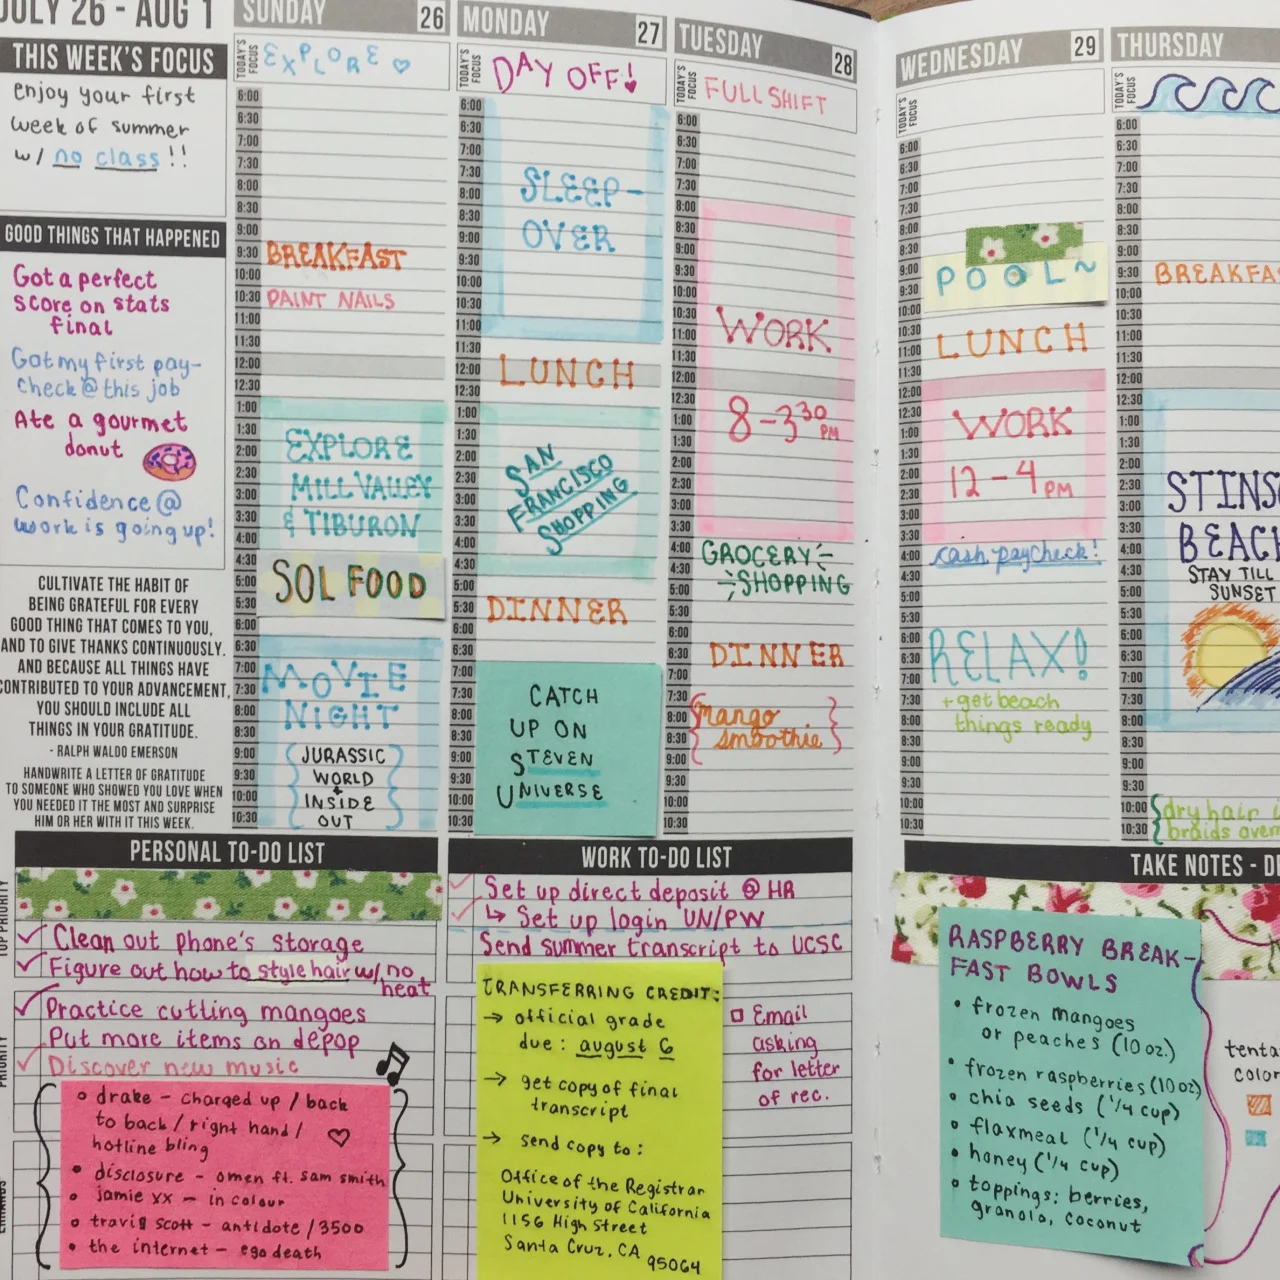 JULY 26 - AUG 1
THIS WEEK'S FOCUS
enjoy your first
week of summer
w/ no class!!
GOOD THINGS THAT HAPPENED
Got a perfect
score on stats
final
Got my first pay-
check @ this job
Ate a gourmet
donut
Confidence @
work is going up!
CULTIVATE THE HABIT OF
BEING GRATEFUL FOR EVERY
GOOD THING THAT COMES TO YOU,
AND TO GIVE THANKS CONTINUOUSLY.
AND BECAUSE ALL THINGS HAVE
CONTRIBUTED TO YOUR ADVANCEMENT,
YOU SHOULD INCLUDE ALL
THINGS IN YOUR GRATITUDE.
- RALPH WALDO EMERSON
HANDWRITE A LETTER OF GRATITUDE
TO SOMEONE WHO SHOWED YOU LOVE WHEN
YOU NEEDED IT THE MOST AND SURPRISE
HIM OR HER WITH IT THIS WEEK.
SUNDAY 26
TODAY'S FOCUS
EXPLORE ♡
6:00
6:30
7:00
7:30
8:00
8:30
9:00
9:30 BREAKFAST
10:00
10:30 PAINT NAILS
11:00
11:30
12:00
12:30
1:00
1:30
2:00 EXPLORE
2:30
3:00 MILL VALLEY
3:30 & TIBURON
4:00
4:30
5:00 SOL FOOD
5:30
6:00
6:30
7:00 MOVIE
7:30
8:00 NIGHT
8:30
9:00 JURASSIC
9:30 WORLD
+
10:00 INSIDE
10:30 OUT
MONDAY 27
TODAY'S FOCUS
DAY OFF!
6:00
6:30
7:00
7:30
8:00 SLEEP-
8:30
9:00 OVER
9:30
10:00
10:30
11:00
11:30
12:00 LUNCH
12:30
1:00
1:30
2:00 SAN
2:30 FRANCISCO
3:00 SHOPPING
3:30
4:00
4:30
5:00
5:30 DINNER
6:00
6:30
7:00
7:30 CATCH
8:00 UP ON
8:30
9:00 STEVEN
9:30 UNIVERSE
10:00
10:30
TUESDAY 28
TODAY'S FOCUS
FULL SHIFT
6:00
6:30
7:00
7:30
8:00
8:30
9:00
9:30
10:00
10:30
11:00 WORK
11:30
12:00
12:30
1:00 8-3:30 PM
1:30
2:00
2:30
3:00
3:30
4:00 GROCERY
4:30 SHOPPING
5:00
5:30
6:00
6:30 DINNER
7:00
7:30
8:00 mango
8:30 smoothie
9:00
9:30
10:00
10:30
WEDNESDAY 29
TODAY'S FOCUS
6:00
6:30
7:00
7:30
8:00
8:30
9:00 POOL~
9:30
10:00
10:30
11:00 LUNCH
11:30
12:00
12:30
1:00 WORK
1:30
2:00
2:30 12-4 PM
3:00
3:30
4:00 cash paycheck!
4:30
5:00
5:30
6:00
6:30 RELAX!
7:00
7:30 + get beach
8:00 things ready
8:30
9:00
9:30
10:00
10:30
THURSDAY
TODAY'S FOCUS
6:00
6:30
7:00
7:30
8:00
8:30
9:00
9:30 BREAKFAS
10:00
10:30
11:00
11:30
12:00
12:30
1:00
1:30
2:00
2:30 STINS
3:00
3:30 BEAC
4:00
4:30 STAY TILL
5:00 SUNSET
5:30
6:00
6:30
7:00
7:30
8:00
8:30
9:00
9:30
10:00 dry hair i
10:30 braids over
PERSONAL TO-DO LIST
TOP PRIORITY
Clean out phone's storage
Figure out how to style hair w/ no
heat
PRIORITY
Practice cutting mangoes
Put more items on depop
Discover new music
• drake - charged up / back
to back / right hand /
hotline bling
• disclosure - omen ft. sam smith
• jamie xx - in colour
• travis scott - antidote / 3500
• the internet - ego death
ERRANDS
WORK TO-DO LIST
Set up direct deposit @ HR
↳ Set up login UN/PW
Send summer transcript to UCSC
TRANSFERRING CREDIT:
→ official grade
due: august 6
→ get copy of final
transcript
→ send copy to:
Office of the Registrar
University of California
1156 High Street
Santa Cruz, CA
95064
□ Email
asking
for letter
of rec.
TAKE NOTES - D
RASPBERRY BREAK-
FAST BOWLS
• frozen mangoes
or peaches (10 oz.)
• frozen raspberries (10 oz)
• chia seeds (1/4 cup)
• flaxmeal (1/4 cup)
• honey (1/4 cup)
• toppings: berries,
granola, coconut
tenta
color